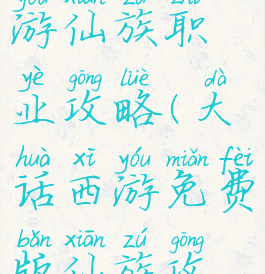 yóu xiān zú zhí
游仙族职
yè gōng lüè dà
业攻略(大
huà xī yóu miǎn fèi
话西游免费
bǎn xiān zú gōng
版仙族攻